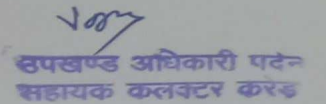 उपखण्ड अधिकारी पदेन
सहायक कलक्टर करेड